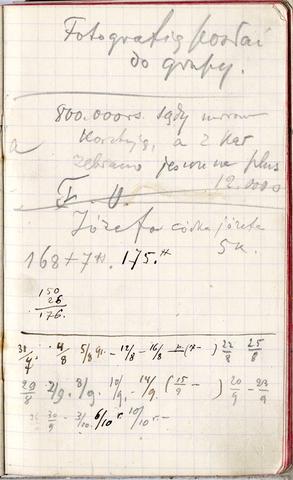 Fotografię posłai
do grupy.
800.000rs. sądy
kosztują, a z kar
zebrano jeszcze na plus
12.000
F. U.
Józefa córka józefa
5 k.
168 + 7 175.
150
26
176.
31/7. 4/8 5/8 12/8 - 16/8 22/8 25/8
29/8 2/9. 8/9. 10/9. 14/9. (15/9 - ) 20/9 - 23/9
30/9 - 3/10. 6/10 10/10